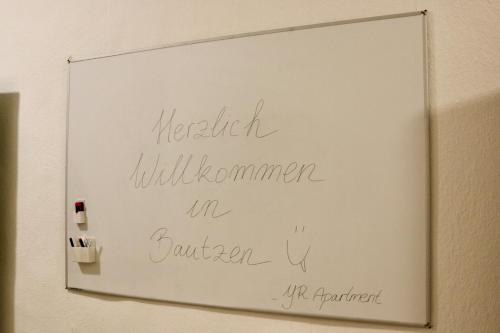 Herzlich
Willkommen
in
Bautzen ü
- YR Apartment